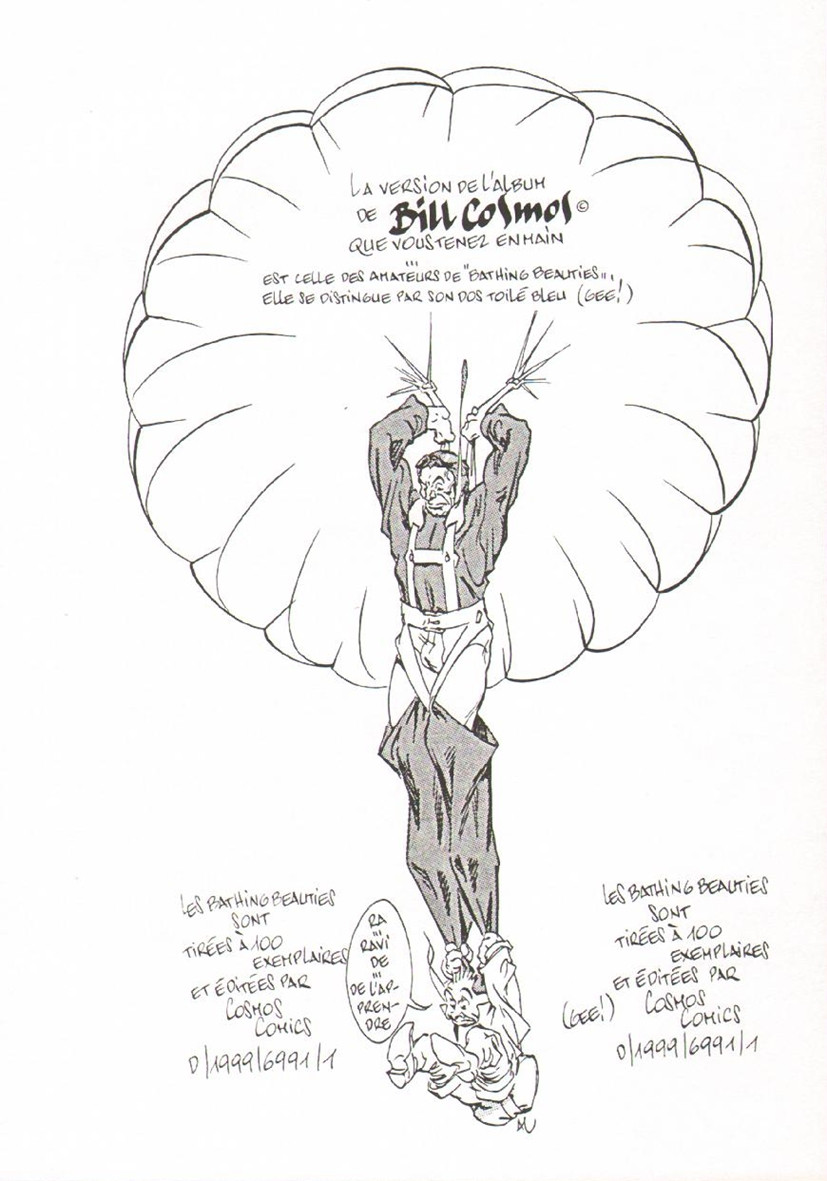 LA VERSION DE L'ALBUM
DE Bill Cosmos ©
QUE VOUS TENEZ EN MAIN
...
EST CELLE DES AMATEURS DE "BATHING BEAUTIES",,
ELLE SE DISTINGUE PAR SON DOS TOILÉ BLEU (GEE!)
LES BATHING BEAUTIES
SONT
TIRÉES À 100
EXEMPLAIRES
ET ÉDITÉES PAR
COSMOS
COMICS
D/1999/6991/1
RA
...
RAVI
DE
...
DE L'AP-
PREN-
DRE
LES BATHING BEAUTIES
SONT
TIRÉES À 100
EXEMPLAIRES
ET ÉDITÉES PAR
(GEE!) COSMOS
COMICS
D/1999/6991/1
AU